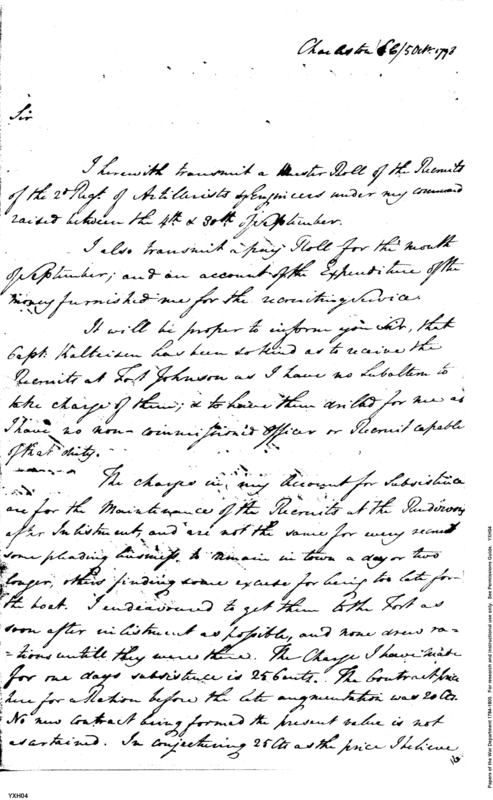 Charleston 5 Octr. 1798
Sir
I herewith transmit a Muster Roll of the Recruits
of the 2d Regt. of Artillerists & Engineers under my command
raised between the 4th & 30th of September.
I also transmit a pay Roll for the month
of September; and an account of the Expenditure of the
money furnished me for the recruiting service.
It will be proper to inform you Sir, that
Capt. Kalteisen has been so kind as to receive the
Recruits at Fort Johnson as I have no Subaltern to
take charge of them; & to have them drilled for me as
I have no non-commissioned Officer or Recruit capable
of that duty.
The charges in my Account for Subsistence
are for the Maintenance of the Recruits at the Rendezvous
after Inlistment, and are not the same for every recruit
some pleading business to remain in town a day or two
longer, others finding some excuse for being too late for
the boat. I endeavoured to get them to the Fort as
soon after inlistment as possible, and none drew ra-
-tions untill they were there. The Charge I have made
for one days subsistence is 25 Cents. The Contract price
here for a Ration before the late augmentation was 20 Cts.
No new contract being formed the present value is not
ascertained. In conjecturing 25 Cts as the price I believe
YXH04
Papers of the War Department 1784-1800. For research and instructional use only. See Permissions Guide. YXH04